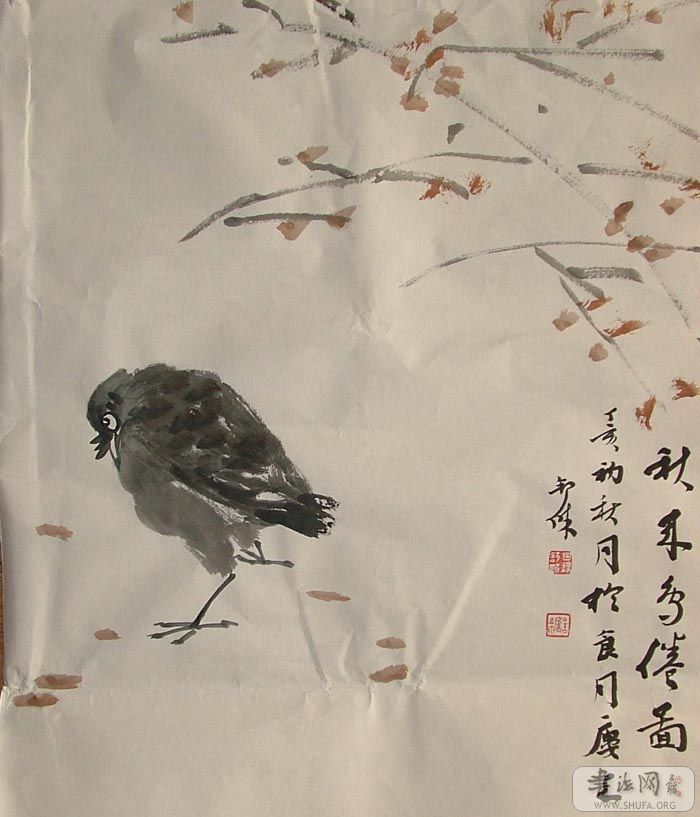 秋来鸟倦图
丁亥初秋月於食月廔
书法网
WWW.SHUFA.ORG